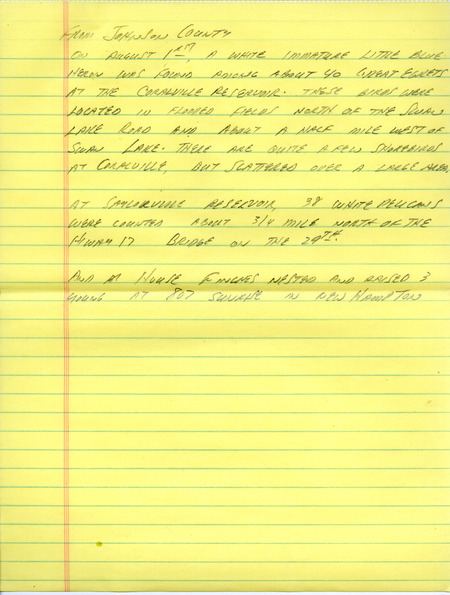 FROM JOHNSON COUNTY
ON AUGUST 1ST, A WHITE IMMATURE LITTLE BLUE
HERON WAS FOUND AMONG ABOUT 40 GREAT EGRETS
AT THE CORALVILLE RESERVOIR. THESE BIRDS WERE
LOCATED IN FLOODED FIELDS NORTH OF THE SWAN
LAKE ROAD AND ABOUT A HALF MILE WEST OF
SWAN LAKE. THERE ARE QUITE A FEW SHOREBIRDS
AT CORALVILLE, BUT SCATTERED OVER A LARGE AREA.
AT SAYLORVILLE RESERVOIR, 38 WHITE PELICANS
WERE COUNTED ABOUT 3/4 MILE NORTH OF THE
HIWAY 17 BRIDGE ON THE 29TH.
AND HOUSE FINCHES NESTED AND RAISED 3
YOUNG AT 807 IN NEW HAMPTON